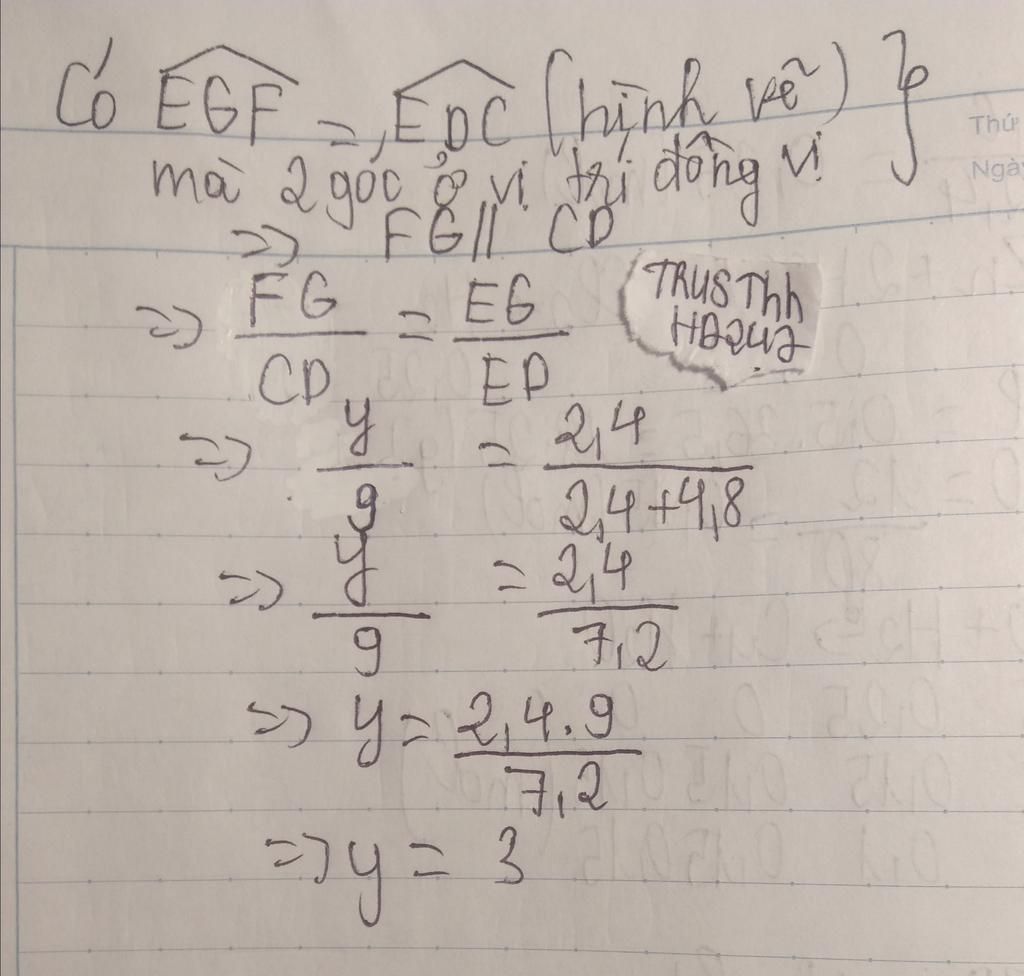 Có EGF = EDC (hình vẽ) }
mà 2 góc ở vị trí đồng vị
=> FG // CD
=> FG/CD = EG/ED
TRUSThh
HD247
=> y/9 = 2,4/2,4+4,8
=> y/9 = 2,4/7,2
=> y = 2,4.9/7,2
=> y = 3
Thứ
Ngày